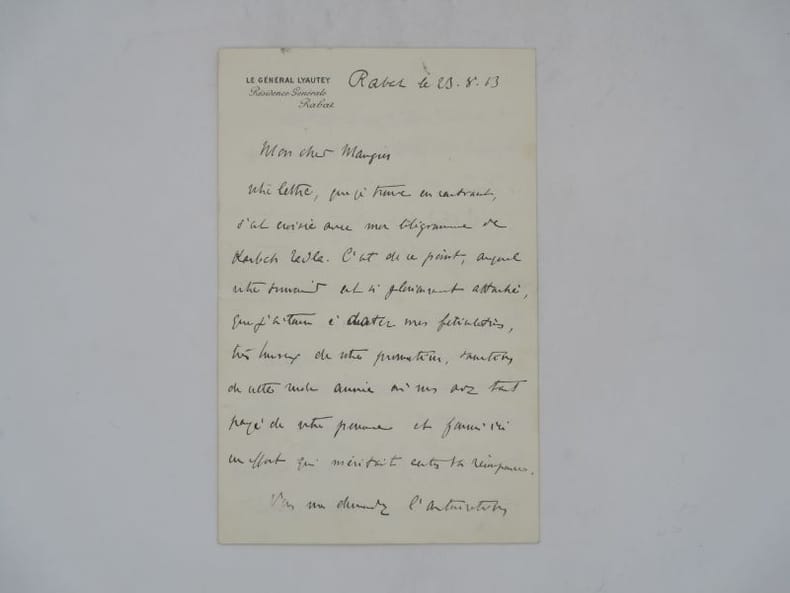 LE GÉNÉRAL LYAUTEY
Résidence Générale
Rabat
Rabat le 23.8.13
Mon cher Mangin
votre lettre, que je trouve en rentrant,
s'est croisée avec mon télégramme de
Kasbah Tadla. C'est de ce point, auquel
votre souvenir est si glorieusement attaché,
que j'ai tenu à dater mes félicitations,
très heureux de votre promotion, sanction
de cette rude année où vous avez tant
payé de votre personne et fourni ici
un effort qui méritait toutes les récompenses.
Vous me demandez l'autorisation